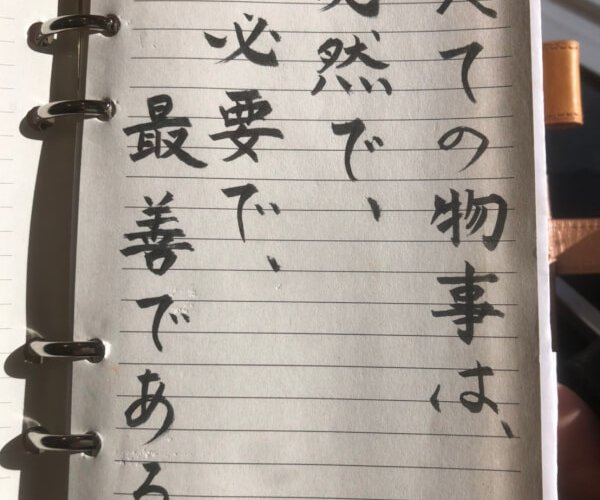 ての物事は、
然で、
必要で、
最善である